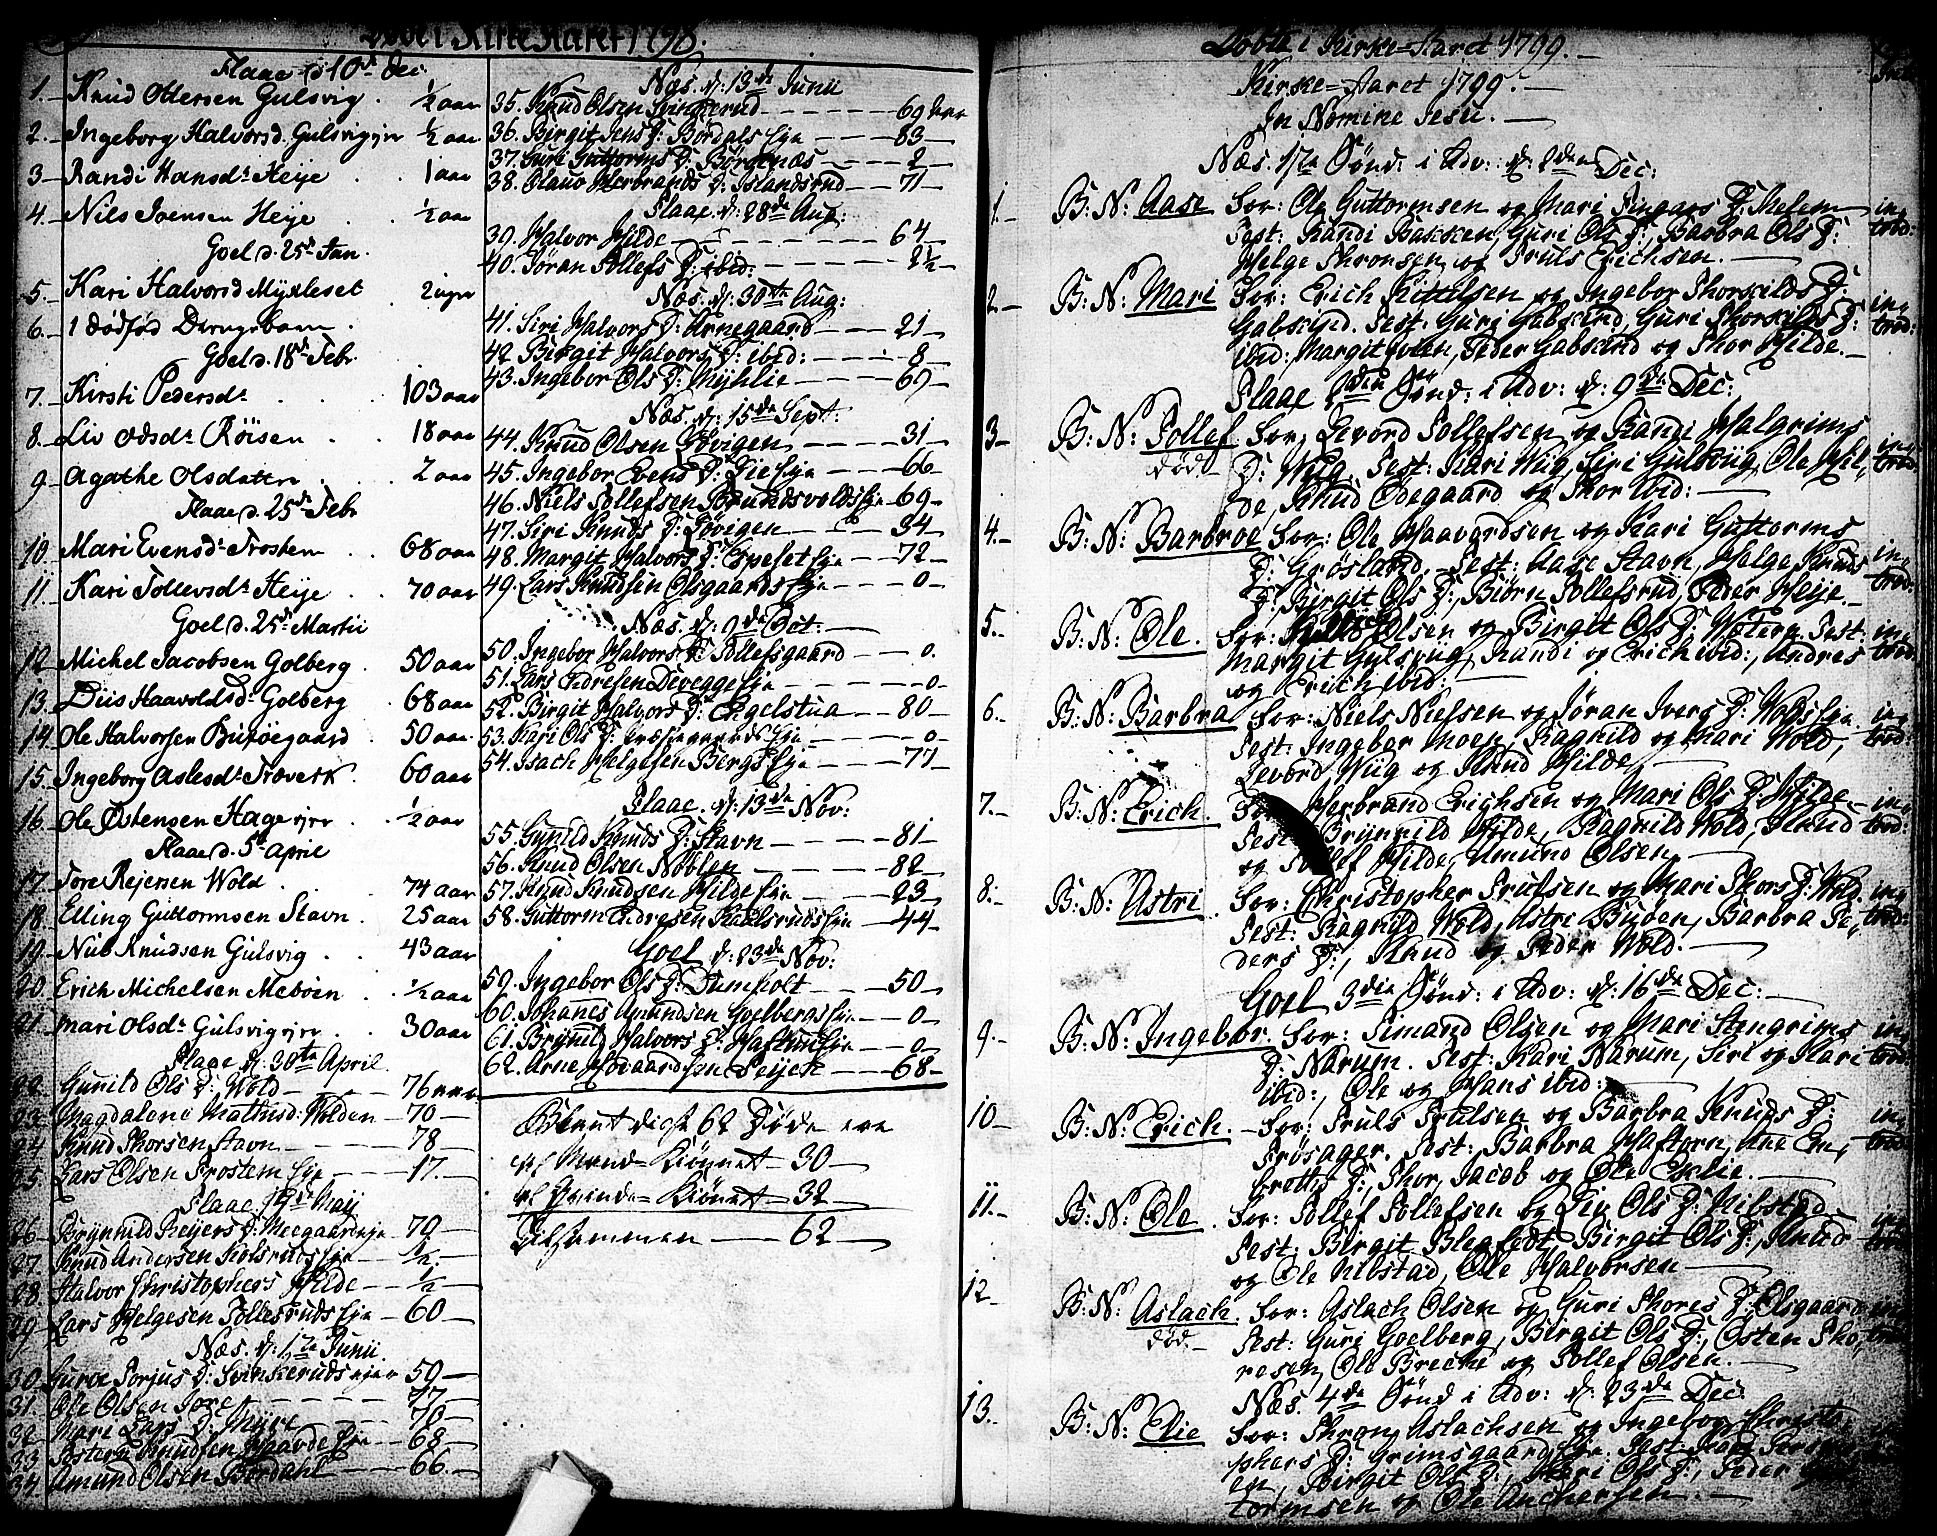 Døde i Kirke Aaret 1798.
Flaae d. 10de Dec.
1. Knud Ottersen Gulsvig. ½ aar
2. Ingeborg Halvorsd. Gulsvigejer ½ aar
3. Randi Hansdr. Heije 1 aar
4. Nils Joensen Heije ½ aar
Goel d. 25de Jan.
5. Kari Halvorsd Myxleset 2 uger
6. 1 dødfød Drengebarn.
Goel d. 18de Febr
7. Kirsti Pedersdr. 103 aar
8. Liv Odsdr. Röisen 18 aar
9. Agathe Olsdatter 2 aar
Flaae d. 25de Febr
10. Mari Evensdr. Trostem 68 aar
11. Kari Tollevsdr. Heije 70 aar
Goel d. 25de Martii
12. Michel Jacobsen Golberg. 50 aar
13. Diis Haavoldsd. Golberg 68 aar
14. Ole Halvorsen Butöegaard 50 aar
15. Ingeborg Aslesdr. 60 aar
16. Ole Østensen Hageejer ½ aar
Flaae d. 5te April
17. Tore Rejersen Wold 74 aar
18. Elling Guttormsen Stavn. 25 aar
19. Nub Knudsen Gulsvig. 43 aar
20. Erich Michelsen Meböen ½ aar
21. Mari Olsdr. Gulsvigejer. 30 aar
Flaae d. 30te April.
22. Gunild Ols D: Wold 76 aar
23. Magdalene Mathisd: Wolden 70
24. Knud Thorsen Stavn 78
25. Lars Olsen Trostem Eje 17.
Flaae 19de Maij
26. Brynnild Reijers D: Meegaardseje 70
27. Knud Andersen Kolsrudseje ½.
28. Halvor Christophers Hilde ½
29. Lars Helgesen Tollefsruds Eje 60
Næs. d: 17de Junii
30. Gurve Torjus D: Svenkeruds ejer 50
31. Ole Olsen 77
32. Mari Lars D: Myre 70
33. Østen Knudsen Haavde Eje 68
34. Amund Olsen Børdahl 66.
Næs. d: 13de Junii
35. Knud Olsen Svinkerud 69 Aar
36. Birgit Jens D: Bördals Eje 83
37. Guri Guttorms D: Børtenæs 2
38. Olauo Herbrands D: Islandsrud 71
Flaae. d: 28de Aug:
39. Halvor Hilde 64
40. Jøran Tollefs D: ibid: 2½
Næs. d: 30te Aug:
41. Siri Halvors D: Arnegaard 21
42. Birgit Halvors D: ibid: 8
43. Ingebor Ols D: Myhlie 69
Næs. d: 15de Sept:
44. Knud Olsen Evigen 31
45. Ingebor Evens D: Lie Eje 66
46. Niels Tollefsen Eje 69
47. Siri Knuds D: Løvigen 34
48. Margit Halvors D: Espeset Eje 72
49. Lars Knudsen Olsgaards Eje 0
Næs. d: 9de Oct:
50. Ingebor Halvors D Tollefsgaard 0.
51. Lars Endresen Devegge Eje 0
52. Birgit Halvors D: Engelstua 80
53. Kari Ols D: Eje 0
54. Isach Helgesen Bergs Eje 77
Flaae. d: 13de Nov:
55. Gunild Knuds D: Stavn 81
56. Knud Olsen Noblen 82
57. Knud Knudsen Hilde Eje 23
58. Guttorm Endresen Karlsruds Eje 44
Goel d: 23de Nov:
59. Ingebor Ols D: Tumholt 50
60. Johanes Amundsen Goelbergs Eje 0
61. Brynild Halvors D: Haftun Eje 0
62. Arne Hovaardsen Seijet 68
Blant disse 62 Døde ere
af Mand-Kiønnet 30
af Qvinde-Kiønnet 32
Tilsammen 62
Døbte i Kirke-Aaret 1799.
Kirke-Aaret 1799.
In Nomine Jesu.
Næs. 1ste Sønd: i Adv: d: 2den Dec:
1. B: N: Aase For: Ole Guttormsen og Mari Fingars D: Melem in,
Test: Randi Bakken, Guri Ols D:, Barbra Ols D: trod:
Helge Thronsen, og Truls Erichsen.
2. B: N: Mari For: Erich Kittelsen og Ingebor Thorkilds D: in,
Gabkind. Test: Guri Gabkind, Guri Thorkilds D: trod:
ibid: Margit, Peder Gabkind og Thor Hilde.
Flaae 2den Sønd: i Adv: d: 9de Dec:
3. B: N: Tollef For: Levord Tollefsen og Randi Halgrims in,
død. D: Wiig. Test: Kari Wiig, Siri Gulsviig, Ole Hil, trod:
de, Knud Ødegaard og Thor ibid:
4. B: N: Barbroe For: Ole Haavordsen og Kari Guttorms in,
D: Grøsland. Test: Aase Stavn, Helge Knuds trod:
D: Birgit Ols D:, Biørn Tollefsrud, Peder Heije.
5. B: N: Ole. For: Olsen og Birgit Ols D: Wetern Test: in,
Margit Gulsviig, Randi og Erich ibid:, Andres trod:
og Erich ibid:
6. B: N: Barbra For: Niels Nielsen og Jøran Ivers D: Wolds Eje in,
Test: Ingebor Moen, Ragnild og Mari Wold, trod:
Levord Wiig og Knud Hilde
7. B: N: Erich. For: Herbrand Erichsen og Mari Ols D: Hilde in,
Test: Brynnild Hilde, Ragnild Wold, Knud trod:
og Tollef Hilde, Amund Olsen
8. B: N: Astri For: Christopher Trulsen og Mari Thors D: Wold. in,
Test: Ragnild Wold, Astri Buden, Barbra Pe, trod:
ders D:, Knud og Peder Wold.
Goel 3die Sønd: i Adv: d: 16de Dec:
9. B: N: Ingebor. For: Simand Olsen og Mari Stengrims in,
D: Narum. Test: Kari Narum, Siri og Kari trod:
ibid:, Ole og Hans ibid:
10. B: N: Erich. For: Truls Trulsen og Barbra Knuds D: in,
Frøsager. Test: Barbra Haftorn, Ane Em, trod:
breths D:, Thor, Jacob og Ole Exlie.
11. B: N: Ole. For: Tollef Tollefsen og Liv Ols D: Nibstad in,
Test: Birgit Blegeedt, Birgit Ols D:, Knud trod:
og Ole Nibstad, Ole Halvorsen
12. B: N: Aslach. For: Aslach Olsen og Guri Thores D: Olsgaard in,
død. Test: Guri Goelberg, Birgit Ols D:, Østen Tho, trod:
resen, Ole Brecke og Tollef Olsen.
Næs. 4de Sønd i Adv: d: 23de Dec:
13. B: N: Elie For: Thron Aslachsen og Ingebor Christo,
phers D: Grimsgaards Eje. Test: Kari
en, Birgit Ols D:, Kari Ols D:, Peder Gut
tormsen og Ole Anchersen.